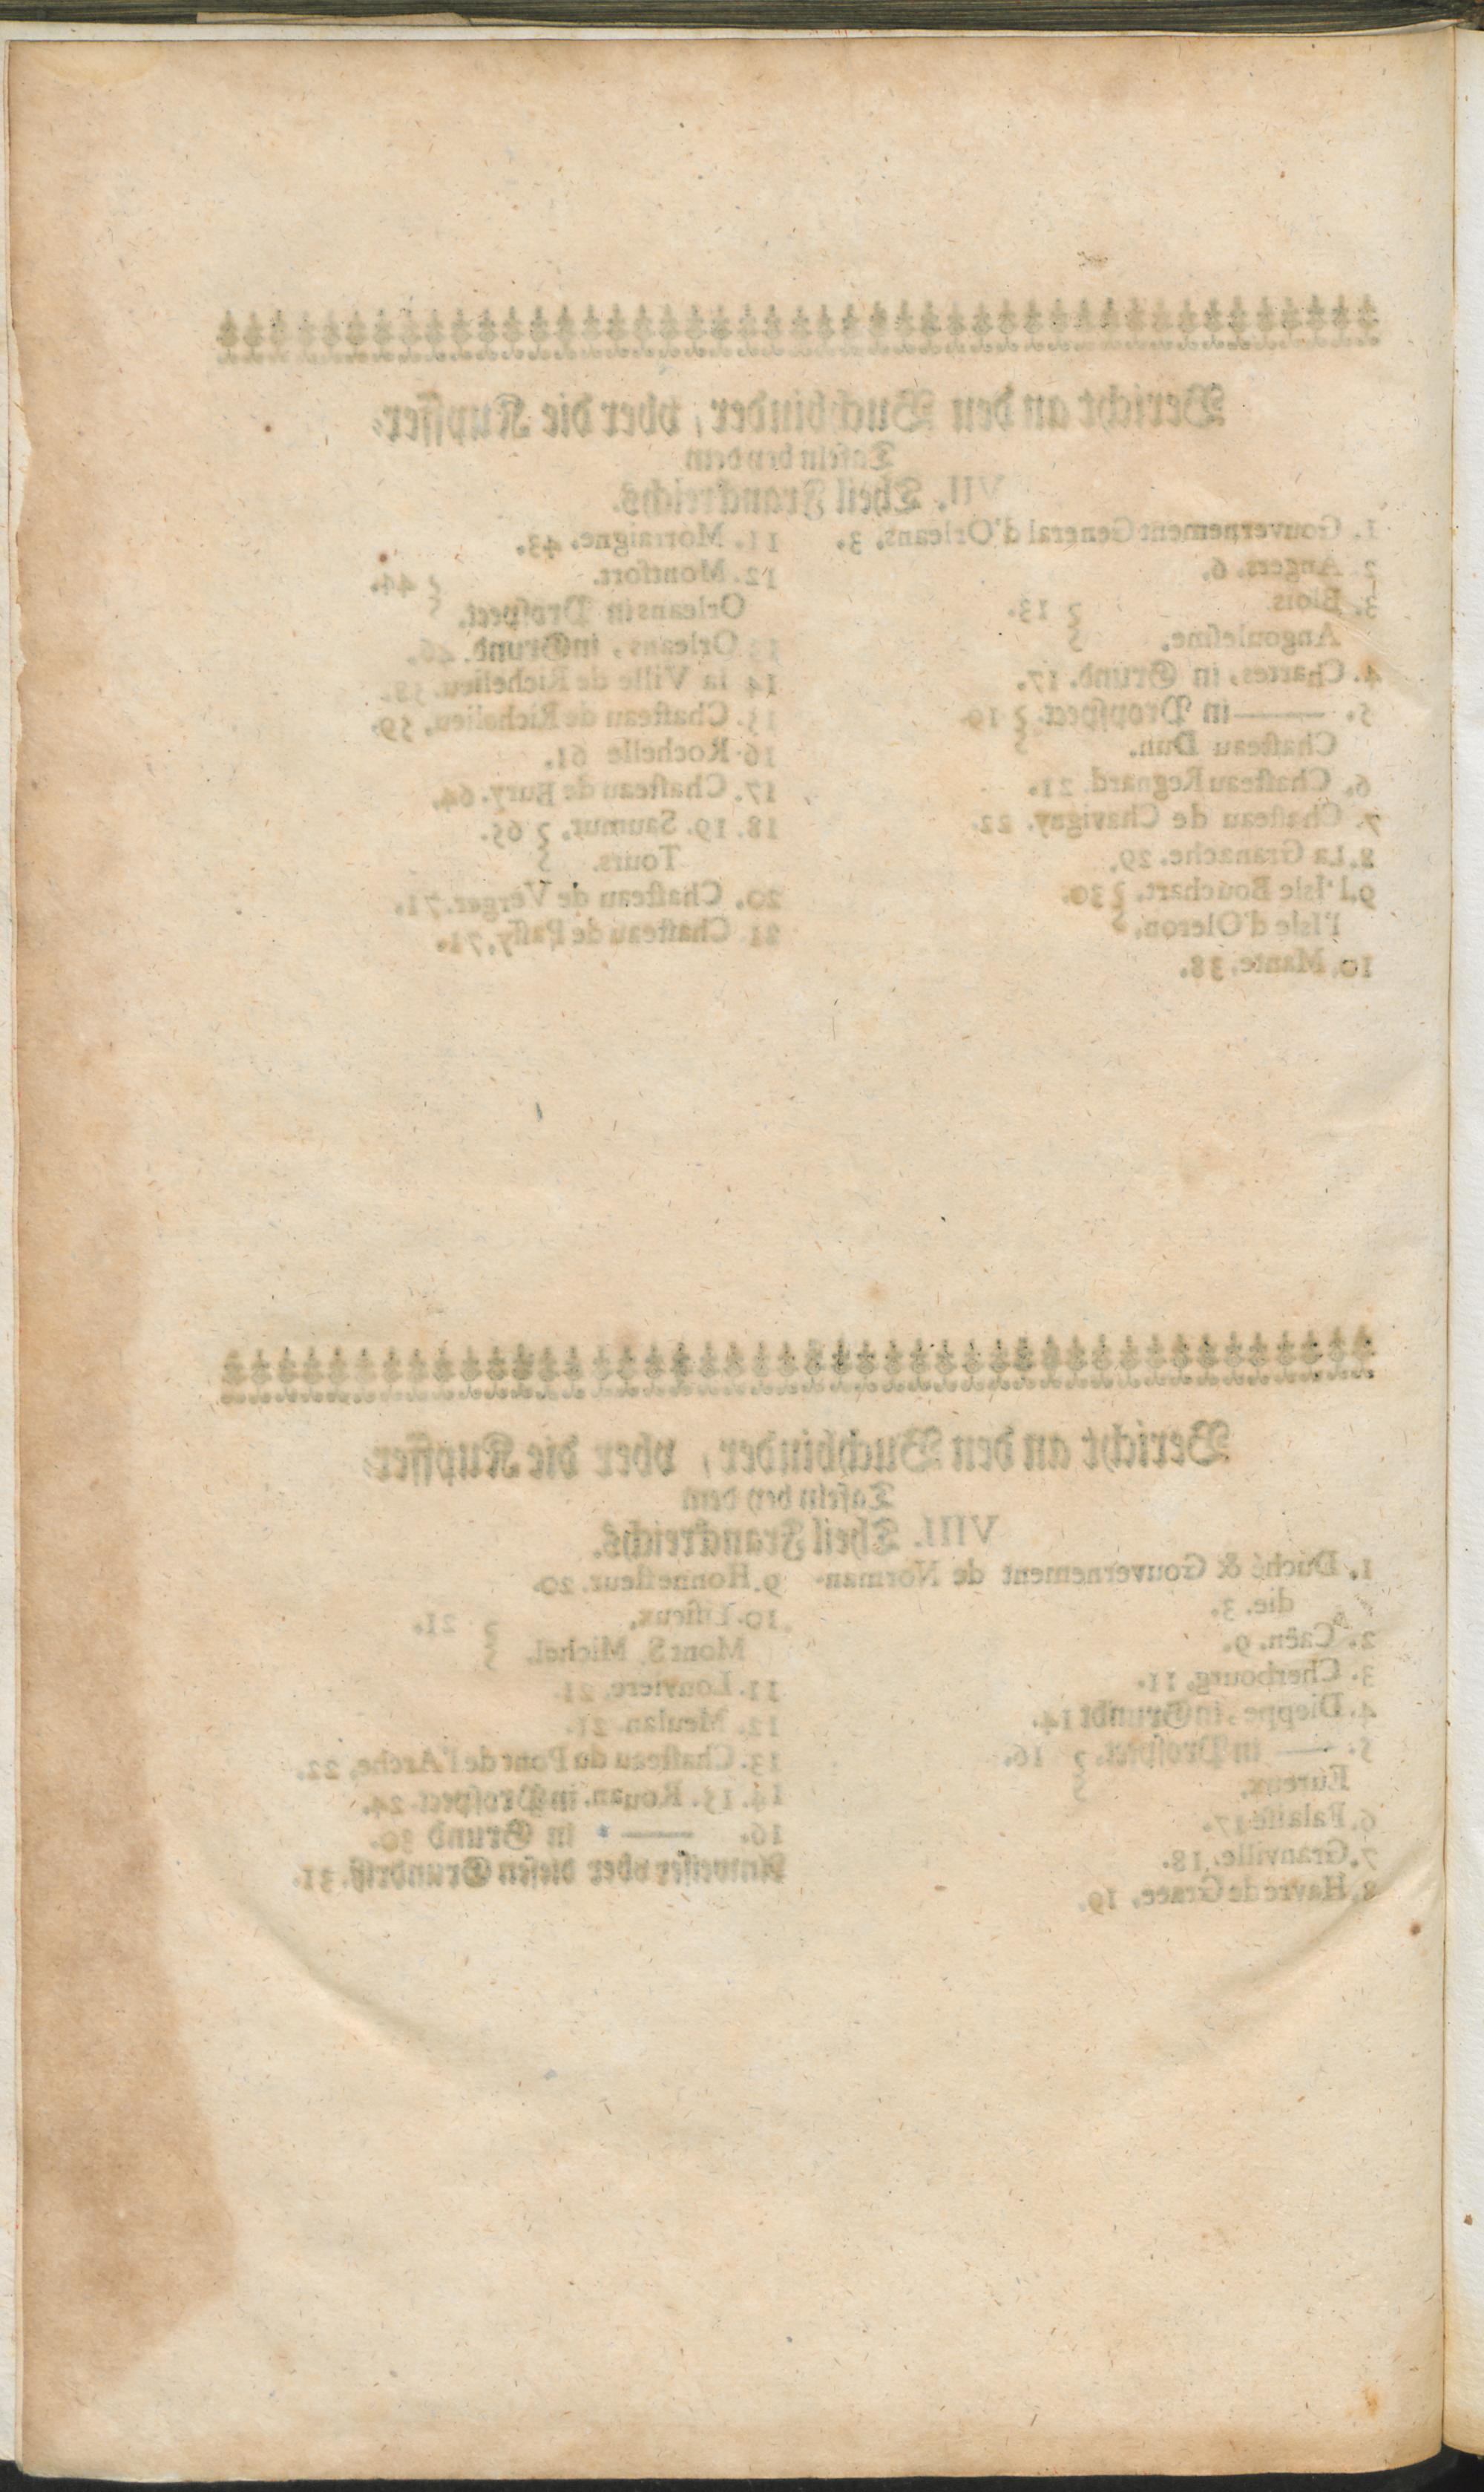 Bericht an den Buchbinder, vber die Kupffer-
Tafeln bey dem
VII. Theil Franckreichs.
1. Gouvernement General d'Orleans, 3.
2. Angers. 6.
3. Blois } 13.
Angoulesme.
4. Chartes, in Grund. 17.
5. —— in Prospect. } 19.
Chasteau Dun.
6. Chasteau Regnard 21.
7. Chasteau de Chavigay. 22.
8. La Granache. 29.
9. l'Isle Bouchart. } 30.
l'Isle d'Oleron.
10. Mante. 38.
11. Morraigne. 43.
12. Montfort. } 44.
Orleans in Prospect.
13 Orleans, in Grund. 46.
14 la Ville de Richelieu.
15. Chasteau de Richelieu, 59.
16. Rochelle 61.
17. Chasteau de Eury. 64.
18. 19. Saumur. } 65.
Tours.
20. Chasteau de Verger. 71.
21 Chasteau de Passy, 71.
Bericht an den Buchbinder, vber die Kupffer-
Tafeln bey dem
VIII. Theil Franckreichs.
1. Duché & Gouvernement de Norman-
die. 3.
2. Caën. 9.
3. Cherbourg. 11.
4. Dieppe, in Grundt 14.
5. —— in Prospect. } 16.
Eureux.
6. Falaise 17.
7. Granville. 18.
8. Havre de Grace, 19.
9. Honnefleur. 20.
10. Lisieux. } 21.
Mont S. Michel.
11. Louviere. 21.
12. Meulan 21.
13. Chasteau du Pont de l'Arche, 22.
14. 15. Rouan, in Prospect. 24.
16. —— in Grund 30.
Anweiser vber diesen Grundriß. 31.